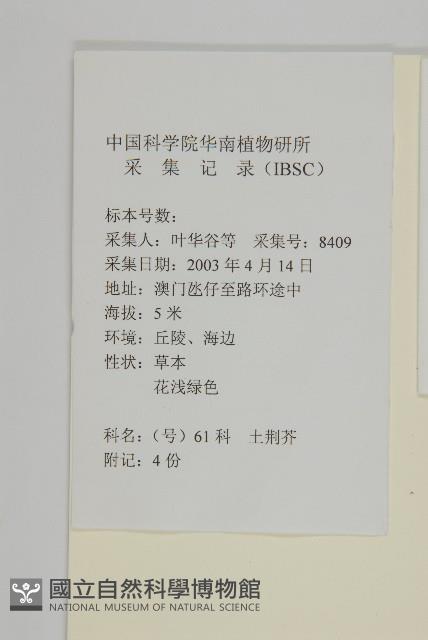 中国科学院华南植物研所
采 集 记 录（IBSC）
标本号数：
采集人：叶华谷等 采集号：8409
采集日期：2003 年 4 月 14 日
地址：澳门氹仔至路环途中
海拔：5 米
环境：丘陵、海边
性状：草本
花浅绿色
科名：（号）61 科 土荆芥
附记：4 份
國立自然科學博物館
NATIONAL MUSEUM OF NATURAL SCIENCE